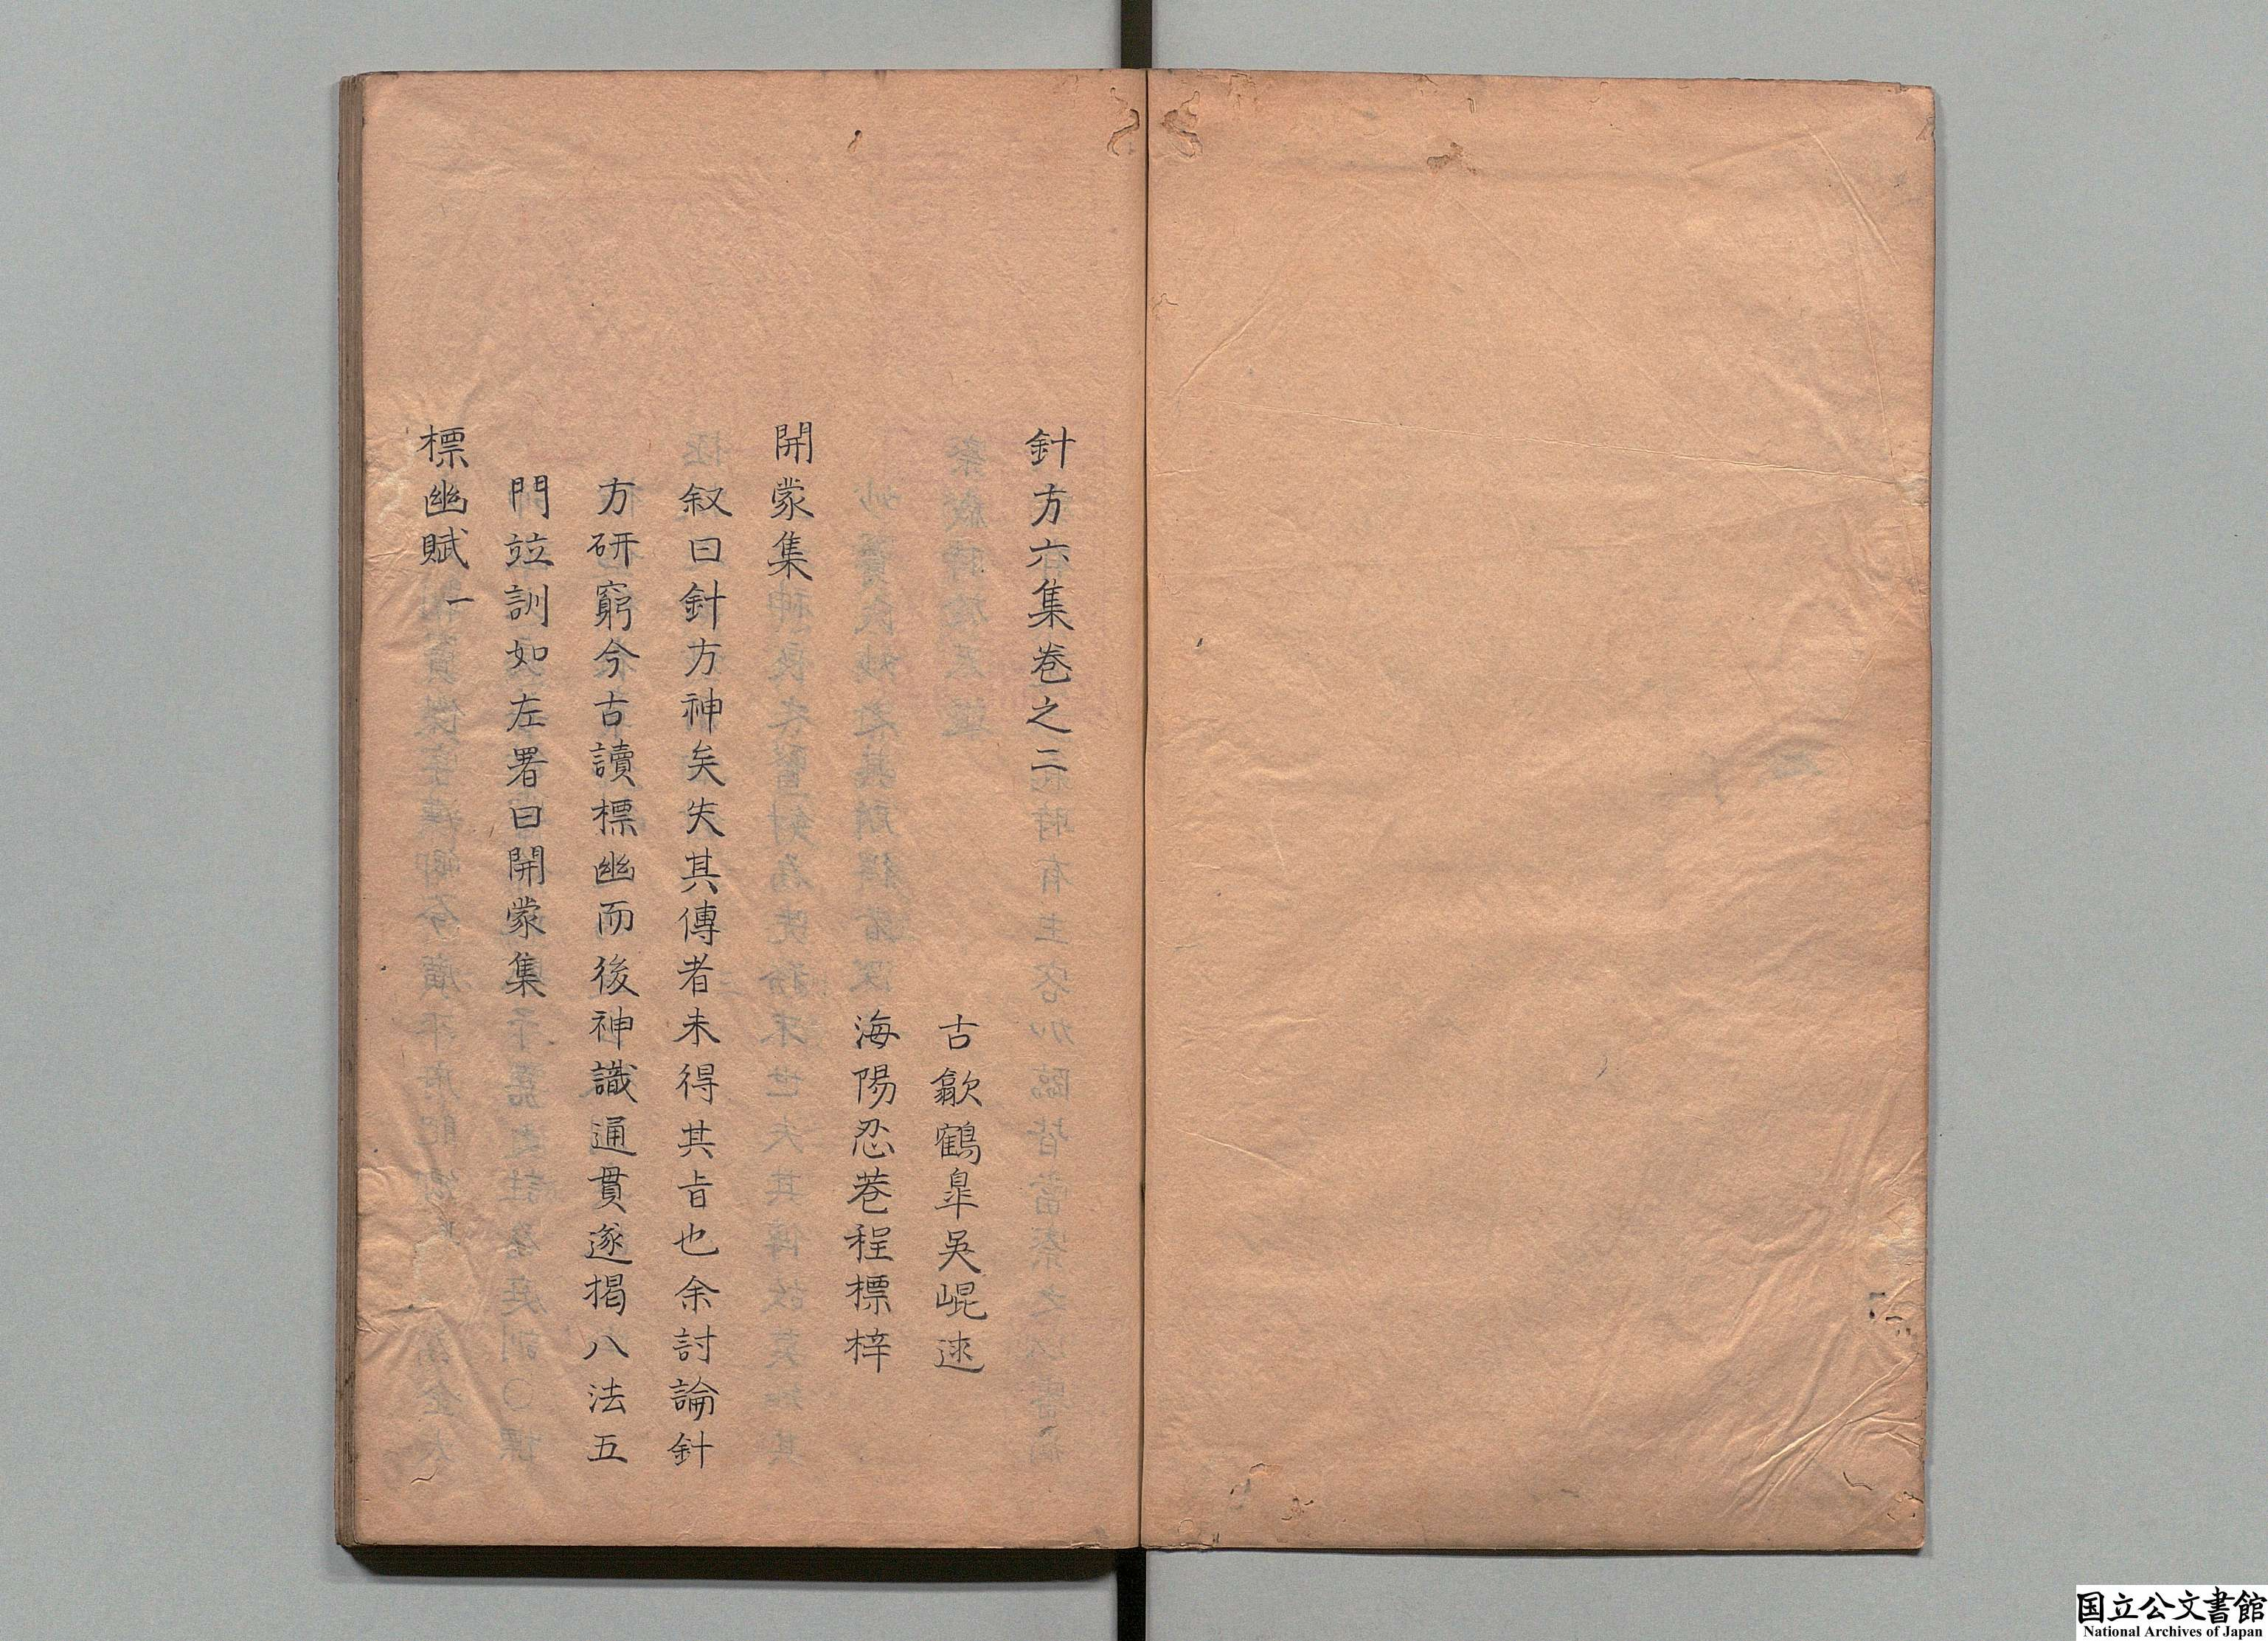 針方六集卷之二
古歙鶴臯吳崐述
海陽忍菴程標梓
開蒙集
叙曰針方神矣失其傳者未得其㫖也余討論針
方研窮今古讀標幽而後神識通貫遂揭八法五
門竝訓如左署曰開蒙集
標幽賦一
国立公文書館
National Archives of Japan